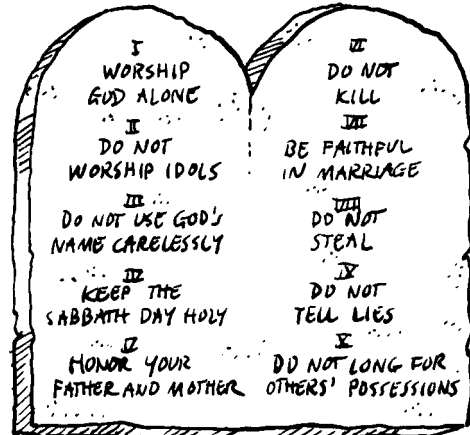 I
WORSHIP
GOD ALONE
II
DO NOT
WORSHIP IDOLS
III
DO NOT USE GOD'S
NAME CARELESSLY
IV
KEEP THE
SABBATH DAY HOLY
V
HONOR YOUR
FATHER AND MOTHER
VI
DO NOT
KILL
VII
BE FAITHFUL
IN MARRIAGE
VIII
DO NOT
STEAL
IX
DO NOT
TELL LIES
X
DO NOT LONG FOR
OTHERS' POSSESSIONS